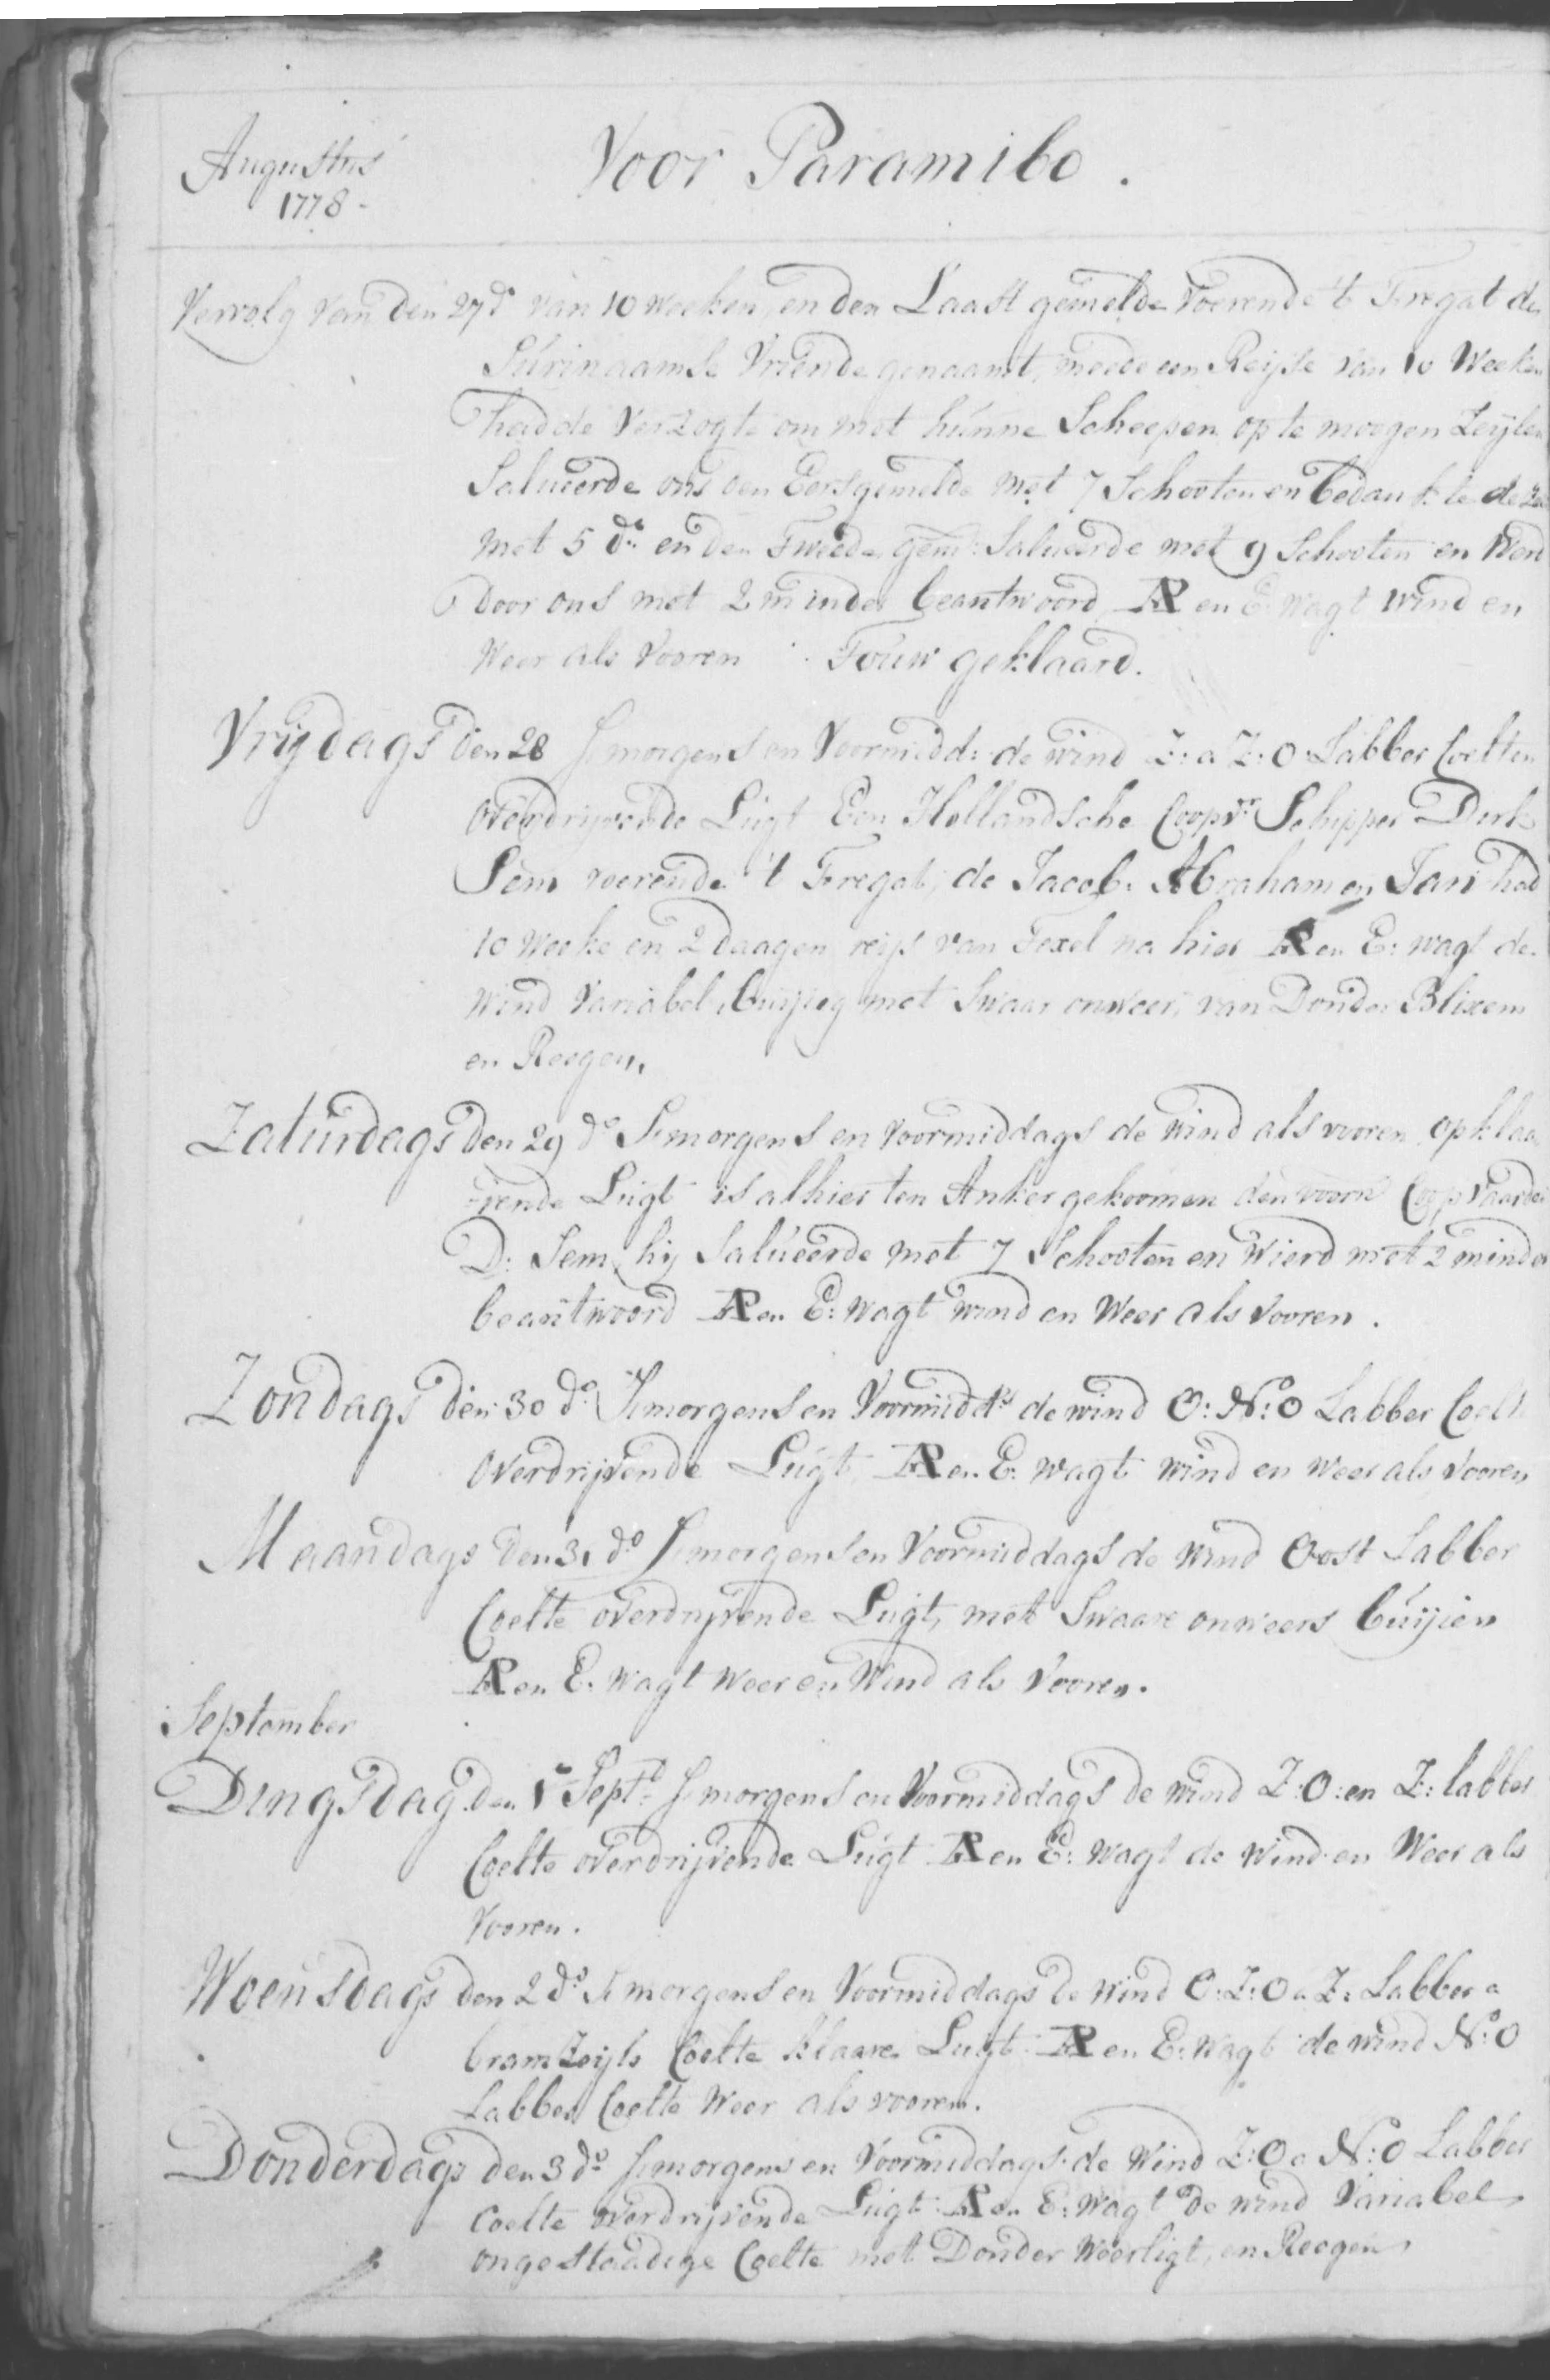 Augustus
1778.
Voor Paramibo.
Vervolg van den 27d van 10 weeken, en den Laast gemelde voerende 't Fregat de
Surinaamse Vriende genaamt, meede een Reijse van 10 Weeken
hadde Verzogte om met hunne Scheepen op te moogen Zeijlen
Salueerde ons den Eersgemelde met 7 Schooten en bedankte deze
met 5 do en den Tweede gem: Salueerde met 9 Schooten en Werd
door ons met 2 minder beantwoord, AP en E: wagt wind en
Weer als Vooren. Touw geklaard.
Vrijdags den 28 Smorgens en Voormidd: de wind Z: a Z:O Labber Coelten
overdrijvende Lugt Een Hollandsche Coopvr Schipper Dirk
Sem voerende 't Fregat, de Jacob Abraham en Jan had
10 Weeke en 2 Daagen reijs van Texel na hier AP en E: wagt de
Wind Variabel, buijieg met Swaar onweer van Donder Blixem
en Reegen,
Zaturdags den 29 do Smorgens en voormiddags de wind als vooren opklaa
rende Lugt is alhier ten Anker gekoomen den voorn Coopvaarder
D: Sem, hij Salueerde met 7 Schooten en Wierd met 2 minder
beantwoord AP en E: wagt wind en Weer als Vooren.
Zondags den 30 do Smorgens en Voormidds de wind O:N:O Labber Coelte
Overdrijvende Lugt, AP en E: wagt wind en weer als Vooren
Maandags den 31 do Smorgens en Voormiddags de Wind Oost Labber
Coelte overdrijvende Lugt, met Swaare onweers buijien
AP en E: wagt weer en Wind als Vooren.
September
Dingsdag den 1e Sept: Smorgens en Voormiddags de wind Z:O: en Z: labber
Coelte overdrijvende Lugt AP en E: wagt de Wind en Weer als
Vooren.
Woensdags den 2 do Smorgens en Voormiddags de Wind O:Z:O a Z: Labber a
bramzeijls Coelte klaare Lugt AP en E: wagt de wind N:O
Labber Coelte Weer als vooren.
Donderdags den 3 do Smorgens en Voormiddags de Wind Z:O a N:O Labber
Coelte overdrijvende Lugt AP en E: wagt de wind Variabel
ongestaadige Coelte met Donder Weerligt, en Reegen